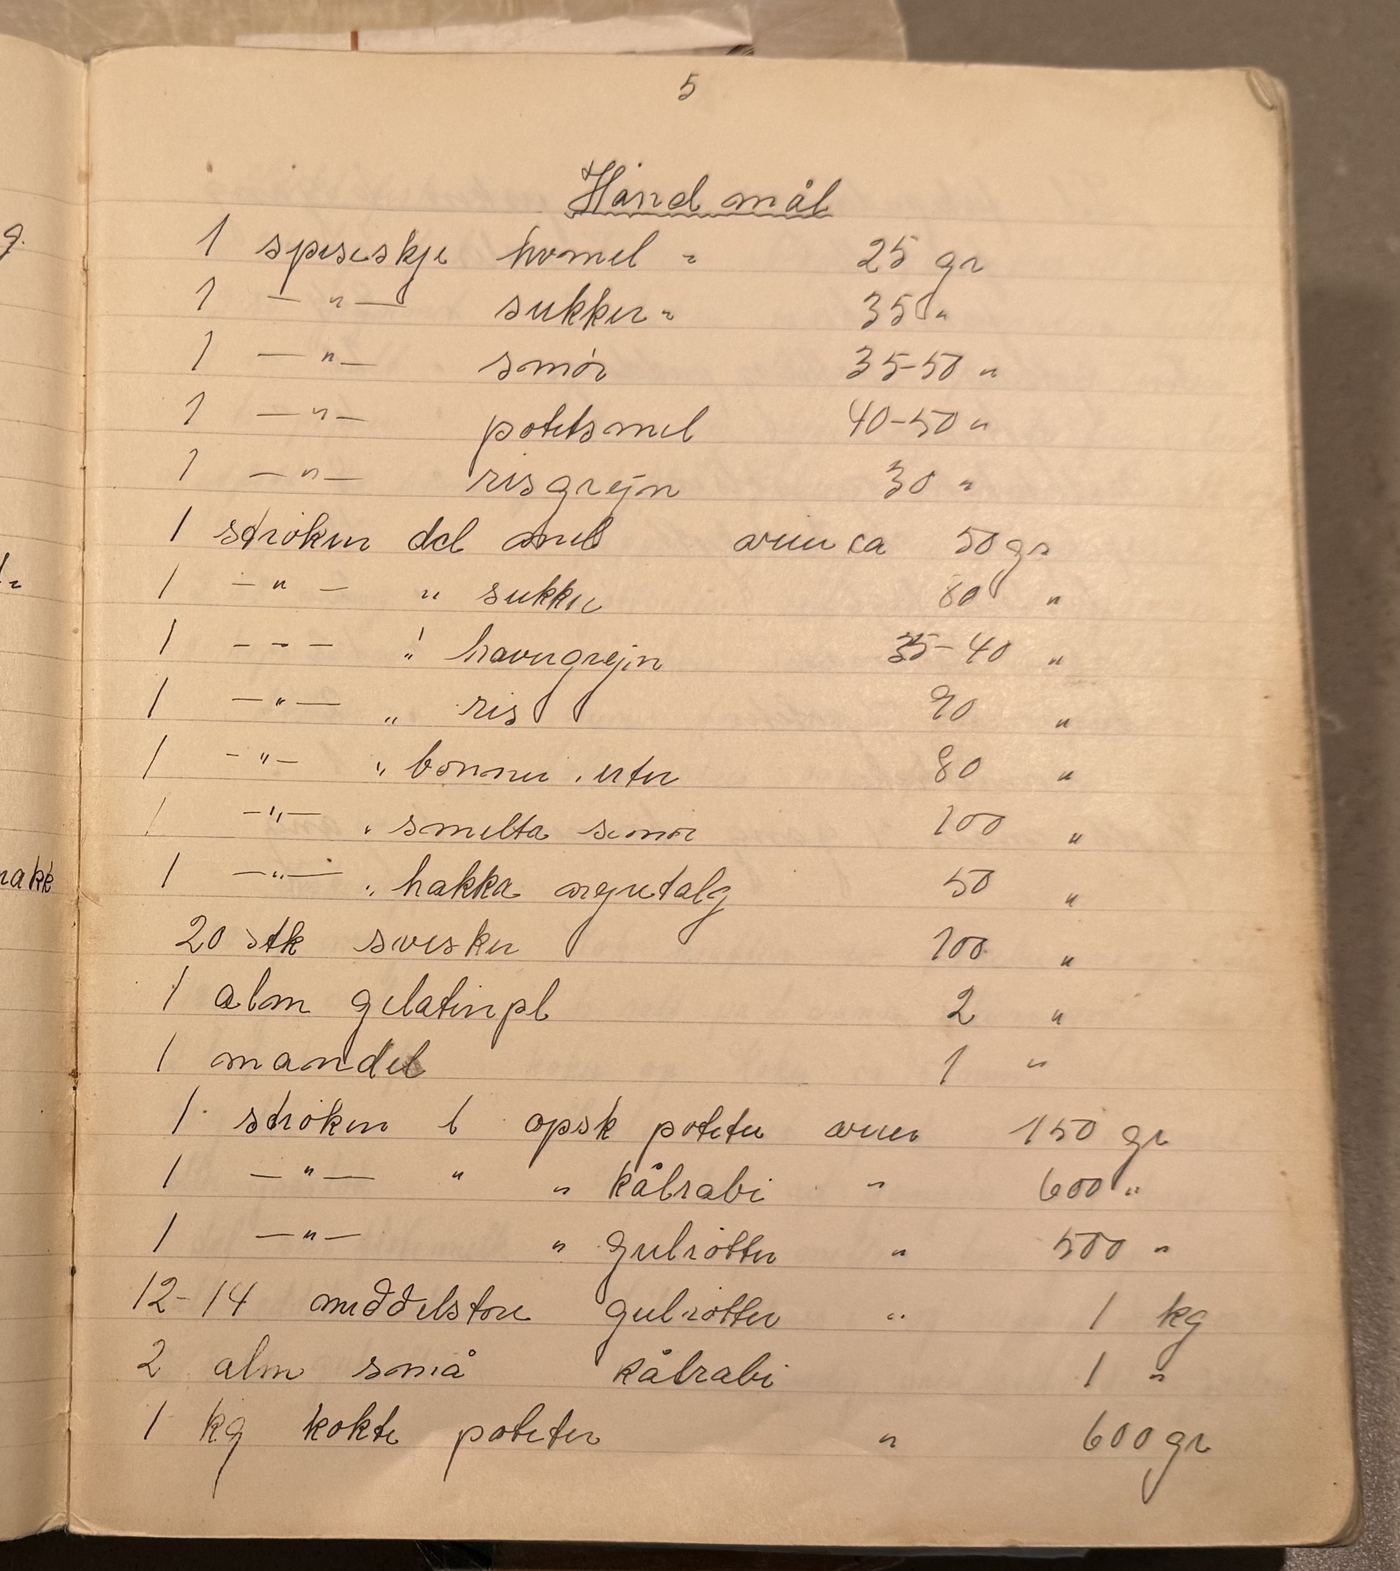 5
Hand mål
g.
1 spiseskje hvmel " 25 gr
1 — " — sukker " 35 "
1 — " — smør 35-50 "
1 — " — potetsmel 40-50 "
1 — " — risgrejn 30 "
1 strøken del mel veier ca 50 gr
1 — " — " sukker 80 "
1 - - - " havregrejn 35-40 "
1 — " — " ris 90 "
1 - " - " bønner, erter 80 "
1 — " — " smelta smør 100 "
nakk
1 — " — " hakka nyretalg 50 "
20 stk svisker 100 "
1 alm gelatinpl 2 "
1 mandel 1 "
1 strøken l opsk poteter veier 150 gr
1 — " — " " kålrabi " 600 "
1 — " — " gulrøtter " 500 "
12-14 middelstore gulrøtter " 1 kg
2 alm små kålrabi 1 "
1 kg kokte poteter " 600 gr